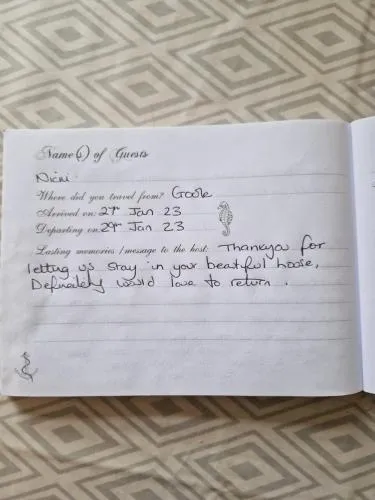 Name(s) of Guests
Nicki.
Where did you travel from? Goole
Arrived on: 27th Jan 23
Departing on: 29th Jan 23
Lasting memories / message to the host: Thankyou for
letting us stay in your beautiful house,
Definately would love to return.